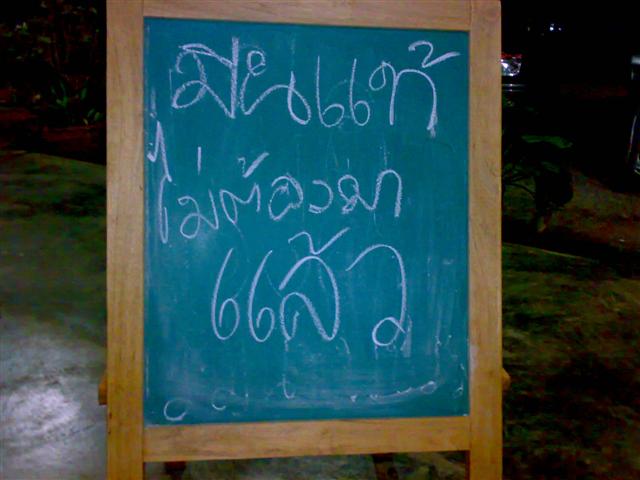 มึนแท้
ไม่ต้องมา
แล้ว